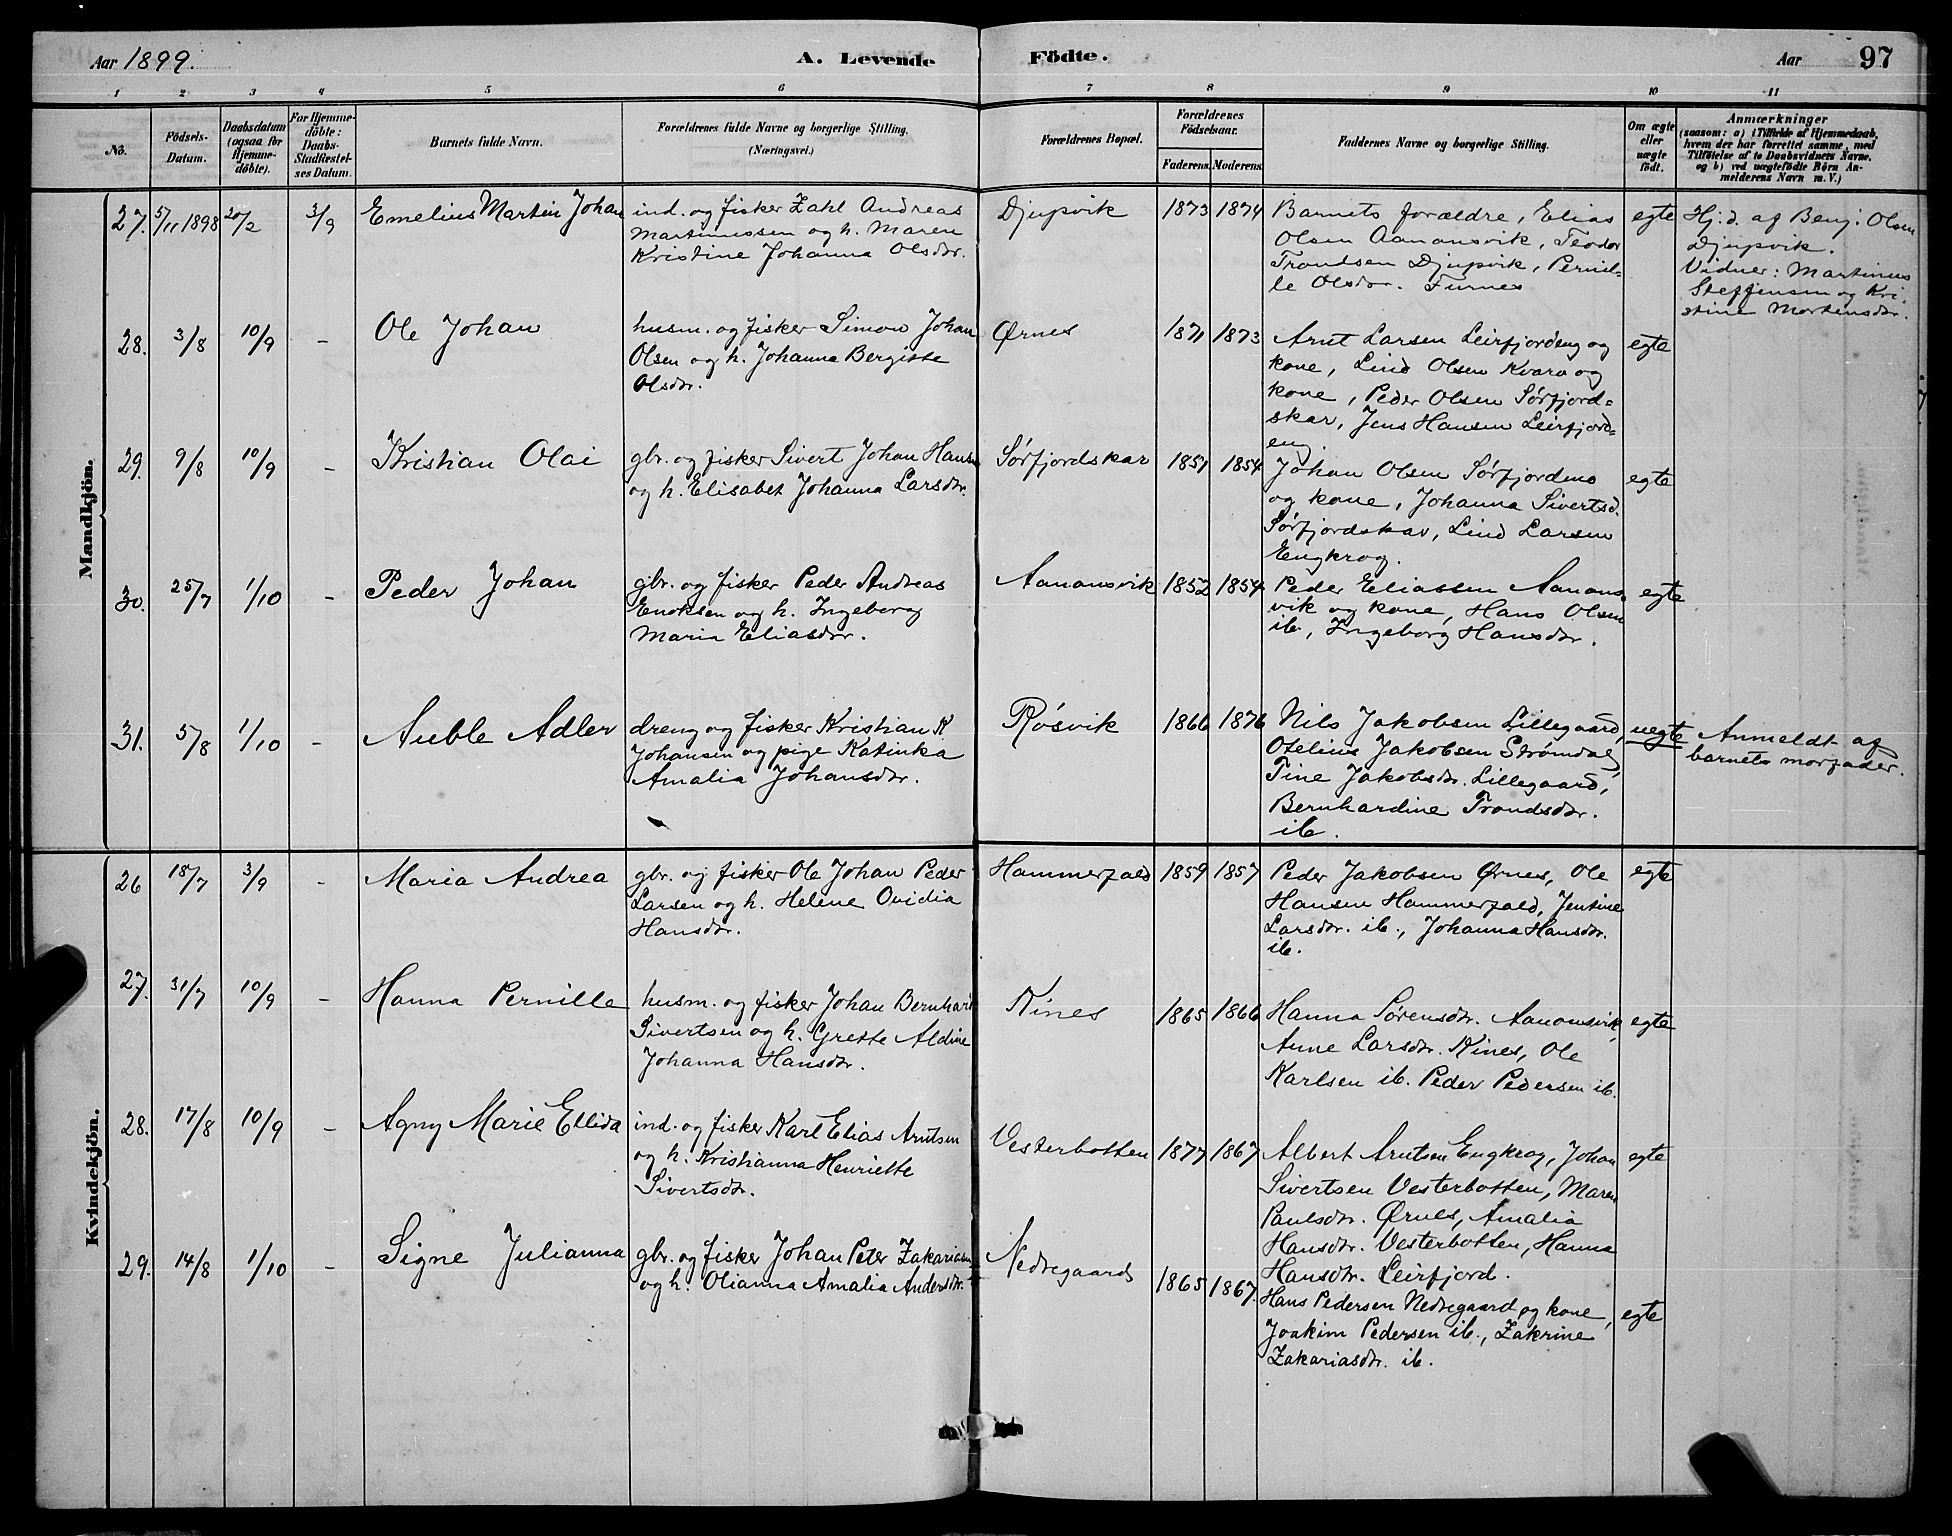 Aar 1899. A. Levende Födte. Aar 97
1 2 3 4 5 6 7 8 9 10 11
No.
Födsels-Datum.
Daabsdatum (ogsaa for Hjemme-döbte).
For Hjemme-döbte: Daabs-Stadfæstel-ses Datum.
Barnets fulde Navn.
Forældrenes fulde Navne og borgerlige Stilling. (Næringsvei.)
Forældrenes Bopæl.
Forældrenes Födselsaar.
Faderens. Moderens.
Faddernes Navne og borgerlige Stilling.
Om ægte eller uægte födt.
Anmærkninger (saasom: a) i Tilfælde af Hjemmedaab, hvem der har forrettet samme, med Tilföielse af to Daabsvidners Navne, og b) ved uægtefödte Börn An-melderens Navn m. V.)
Mandkjön.
27. 5/11 1898 20/2 3/9 Emelius Martin Johan
ind. og fisker Zahl Andreas
Martinussen og h. Maren
Kristine Johanna Olsdtr.
Djupvik 1873 1874
Barnets forældre, Elias
Olsen Aanonsvik, Teodor
Trondsen Djupvik, Pernil-
le Olsdtr. Furnes
egte
Hj. d. af Benj. Olsen
Djupvik.
Vidner: Martinus
Steffensen og Kri-
stine Mortensdtr.
28. 3/8 10/9 - Ole Johan
husm. og fisker Simon Johan
Olsen og h. Johanna Bergitte
Olsdtr.
Ørnes 1871 1873
Arnt Larsen Leirfjordeng og
kone, Lind Olsen Kvarv og
kone, Peder Olsen Sørfjord=
skar, Jens Hansen Leirfjord-
eng.
egte
29. 9/8 10/9 - Kristian Olai
gbr. og fisker Sivert Johan Hansen
og h. Elisabet Johanna Larsdtr.
Sørfjordskar 1851 1854
Johan Olsen Sørfjordmo
og kone, Johanna Sivertsd.
Sørfjordskar, Lind Larsen
Engkrog.
egte
30. 25/7 1/10 - Peder Johan
gbr. og fisker Peder Andreas
Enoksen og h. Ingeborg
Maria Eliasdtr.
Aanonsvik 1852 1854
Peder Eliassen Aanons-
vik og kone, Hans Olsen
ib., Ingeborg Hansdtr.
egte
31. 5/8 1/10 - Auble Adler
dreng og fisker Kristian K.
Johansen og pige Katinka
Amalia Johansdtr.
Røsvik 1866 1876
Nils Jakobsen Lillegaard,
Otelius Jakobsen Strømdal,
Tine Jakobsdtr. Lillegaard,
Bernhardine Trondsdtr.
ib.
uegte
Anmeldt af
barnets morfader.
Kvindekjön.
26 18/7 3/9 - Maria Andrea
gbr. og fisker Ole Johan Peder
Larsen og h. Helene Ovidia
Hansdtr.
Hammerfald 1859 1857
Peder Jakobsen Ørnes, Ole
Hansen Hammerfald, Jentine
Larsdtr. ib., Johanna Hansdtr.
ib.
egte
27. 31/7 10/9 - Hanna Pernille
husm. og fisker Johan Bernhard
Sivertsen og h. Grette Aldine
Johanna Hansdtr.
Kines 1865 1866
Hanna Sørensdtr. Aanonsvik,
Anne Larsdtr. Kines, Ole
Karlsen ib. Peder Pedersen ib.
egte
28. 17/8 10/9 - Agny Marie Ellida
ind. og fisker Karl Elias Arntsen
og h. Kristianna Henriette
Sivertsdtr.
Vesterbotten 1877 1867
Albert Arntsen Engkrog, Johan
Sivertsen Vesterbotten, Maren
Paulsdtr. Ørnes, Amalia
Hansdtr. Vesterbotten, Hanna
Hansdtr. Leirfjord.
egte
29. 14/8 1/10 - Signe Julianna
gbr. og fisker Johan Peter Zakariasen
og h. Olianna Amalia Andersdtr.
Nedregaard 1865 1867.
Hans Pedersen Nedregaard og kone,
Joakim Pedersen ib., Zakrine
Zakariasdtr. ib.
egte